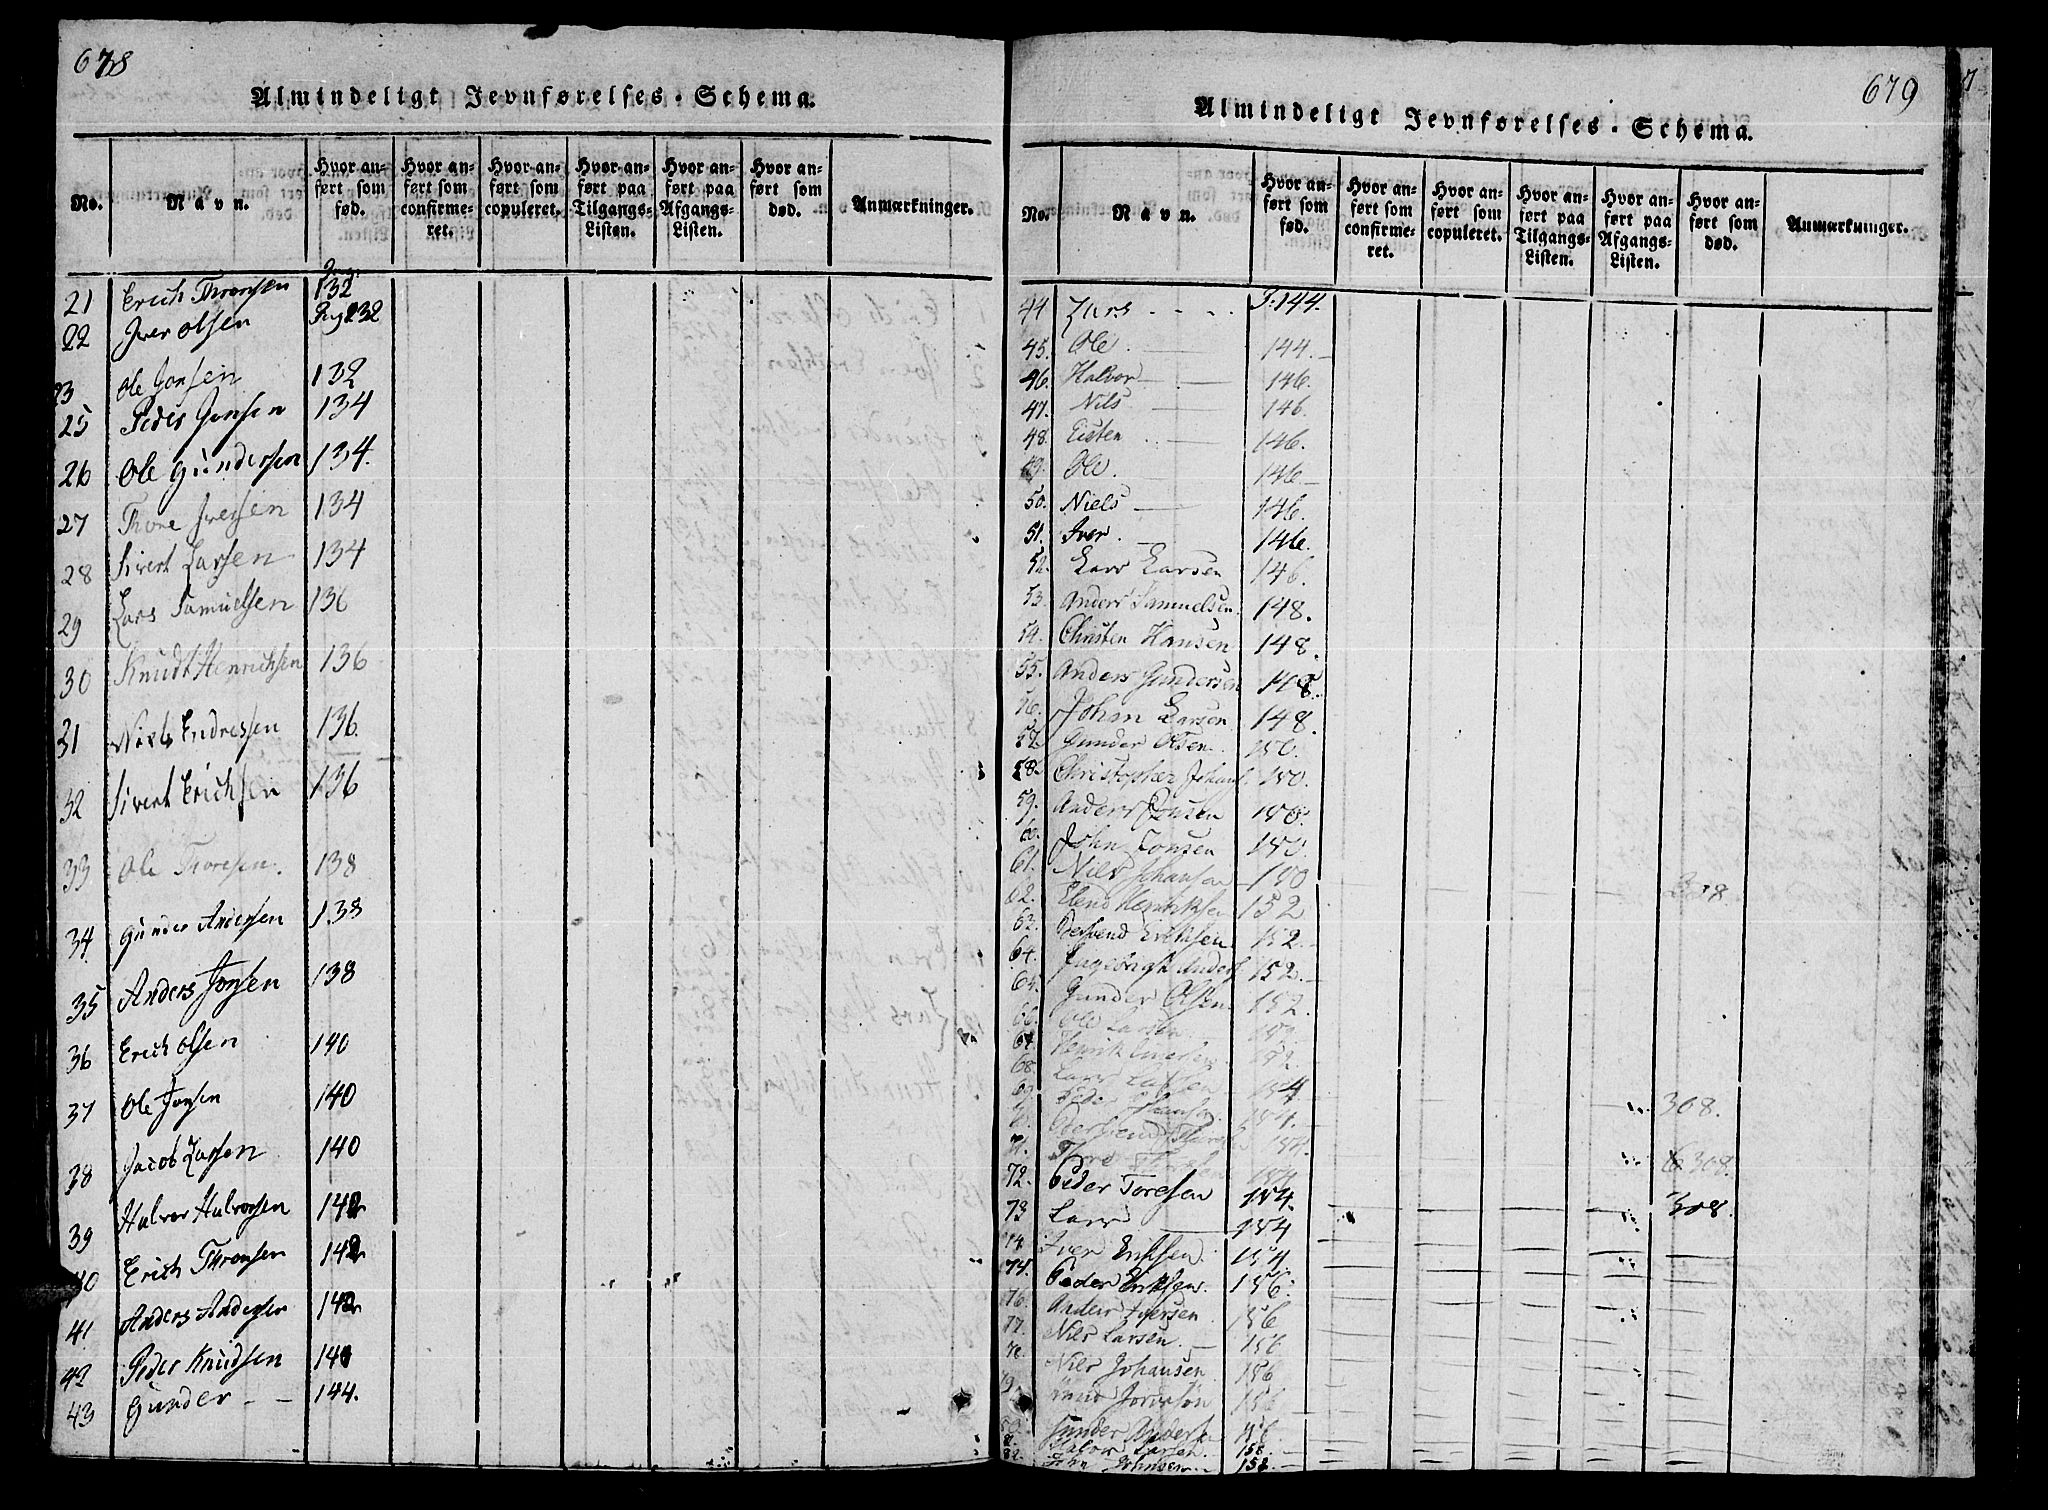 678
Almindeligt Jevnførelses-Schema.
No. Navn. Hvor anført som fød. Hvor anført som confirmeret. Hvor anført som copuleret. Hvor anført paa Tilgangs-Listen. Hvor anført paa Afgangs-Listen. Hvor anført som død. Anmærkninger.
21 Erich Thronsen 132
22 Iver Olsen Pag 132
23 Ole Jonsen 132
25 Peder Jonsen 134
26 Ole Gundersen 134.
27 Thore Iversen 134
28 Sivert Larsen 134
29 Lars Samuelsen 136
30 Knudt Henrichsen 136
31 Niels Endressen 136.
32 Sivert Erichsen 136
33 Ole Thoresen. 138
34 Gunder Andersen 138
35 Anders Jonsen 138
36 Erich Olsen 140
37 Ole Jonsen 140
38 Jacob Larsen 140
39 Halvor Halvorsen 142
40 Erich Thronsen 142
41 Anders Andersen 142
42 Peder Knudsen 144
43 Gunder - - 144.
679
Almindeligt Jevnførelses-Schema.
No. Navn. Hvor anført som fød. Hvor anført som confirmeret. Hvor anført som copuleret. Hvor anført paa Tilgangs-Listen. Hvor anført paa Afgangs-Listen. Hvor anført som død. Anmærkninger.
44 Lars - - - - P. 144.
45. Ole. 144.
46. Halvor 146.
47. Nils 146.
48. Eisten 146.
49. Ole. 146.
50. Niels 146.
51. Iver. 146.
52. Lars Larsen 146.
53. Anders Samuelsen. 148.
54. Christen Hansen 148.
55. Anders Gundersen 148.
56. Johan Larsen 148.
57. Gunder Olsen. 150.
58. Christopher Johans. 150.
59. Anders Jonsen 150.
60. John Jonsen 150.
61. Niels Johansen 150
62. Elend Henriksen 152 308
63. Eriksen 152.
64. Ingebrigt Anders 152.
65. Gunder Olsen 152.
66. Ole Larsen 152.
67. Henrik Iversen 152.
68. Lars Larsen 154
69. Peder Johansen. 154. 308.
70. 154.
71. Thore 154 308.
72. Peder Toresen 154.
73 Lars 154 308.
74 Iver Eriksen 154.
75. Peder Eriksen. 156.
76. Anders Iversen 156
77. Nils Larsen. 156
78. Nils Johansen 156
79. 156
80. Gunder 156
81. Halvor Larsen. 158.
82. John Johnsen. 158